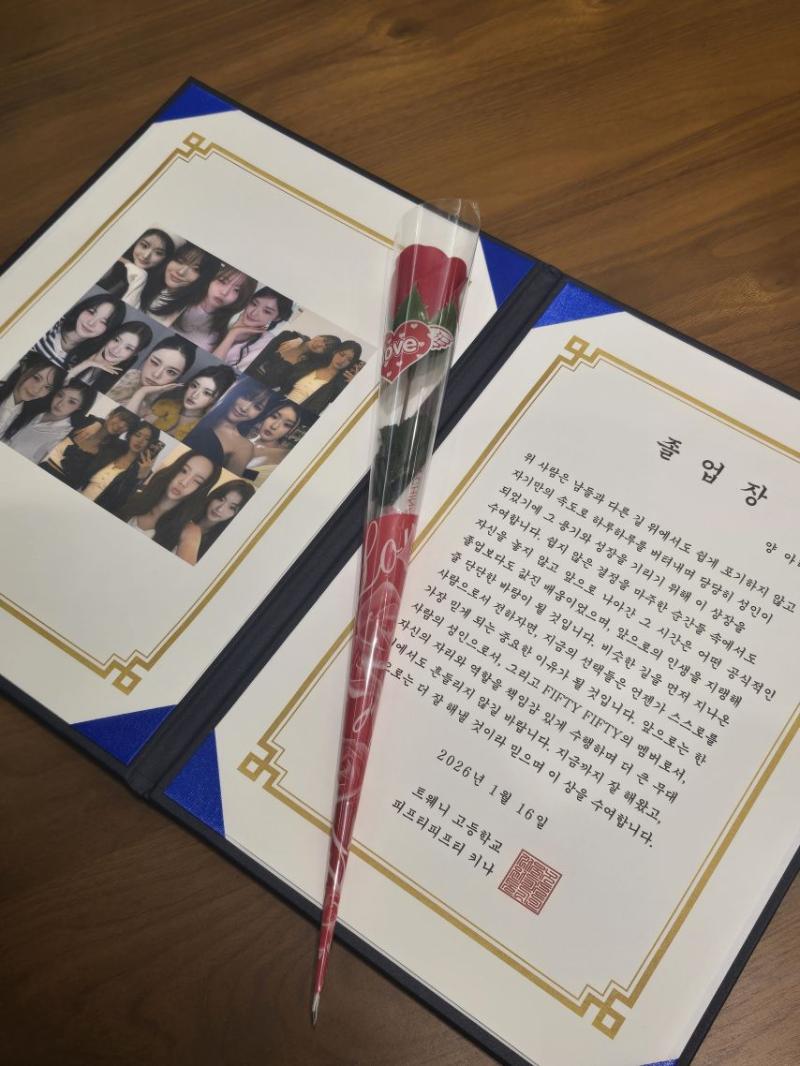 love
Lo
졸업장
양 아
위 사람은 남들과 다른 길 위에서도 쉽게 포기하지 않고
자기만의 속도로 하루하루를 버텨내며 당당히 성인이
되었기에 그 용기와 성장을 기리기 위해 이 상장을
수여합니다. 쉽지 않은 결정을 마주한 순간들 속에서도
자신을 놓지 않고 앞으로 나아간 그 시간은 어떤 공식적인
졸업보다도 값진 배움이었으며, 앞으로의 인생을 지탱해
줄 단단한 바탕이 될 것입니다. 비슷한 길을 먼저 지나온
사람으로서 전하자면, 지금의 선택들은 언젠가 스스로를
가장 믿게 되는 중요한 이유가 될 것입니다. 앞으로는 한
사람의 성인으로서, 그리고 FIFTY FIFTY의 멤버로서,
자신의 자리와 역할을 책임감 있게 수행하며 더 큰 무대
에서도 흔들리지 않길 바랍니다. 지금까지 잘 해왔고,
으로는 더 잘 해낼 것이라 믿으며 이 상을 수여합니다.
2026년 1월 16일
트웨니 고등학교
피프티피프티 키나